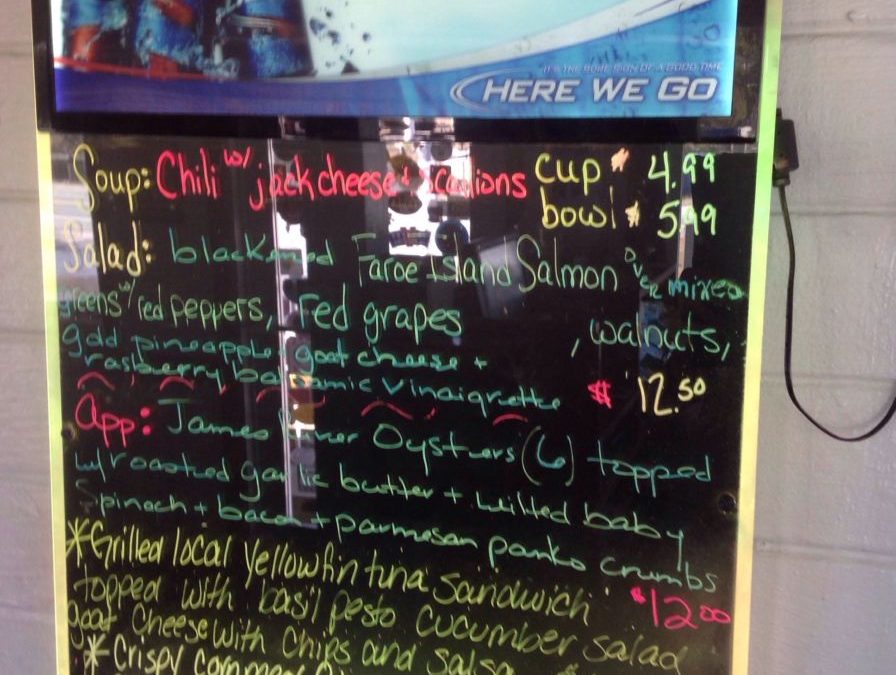 IT'S THE SURE SIGN OF A GOOD TIME
HERE WE GO
Soup: Chili w/ jack cheese + scallions cup $ 4.99
bowl $ 5.99
Salad: blackened Faroe Island Salmon over mixed
greens w/ red peppers, red grapes , walnuts,
gold pineapple, goat cheese +
rasberry balsamic vinaigrette $ 12.50
App: James River Oysters (6) topped
w/ roasted garlic butter + wilted baby
Spinach + bacon + parmesan panko crumbs
*Grilled local yellowfin tuna sandwich
topped with basil pesto cucumber salad $12.00
goat cheese with chips and salsa
* Crispy